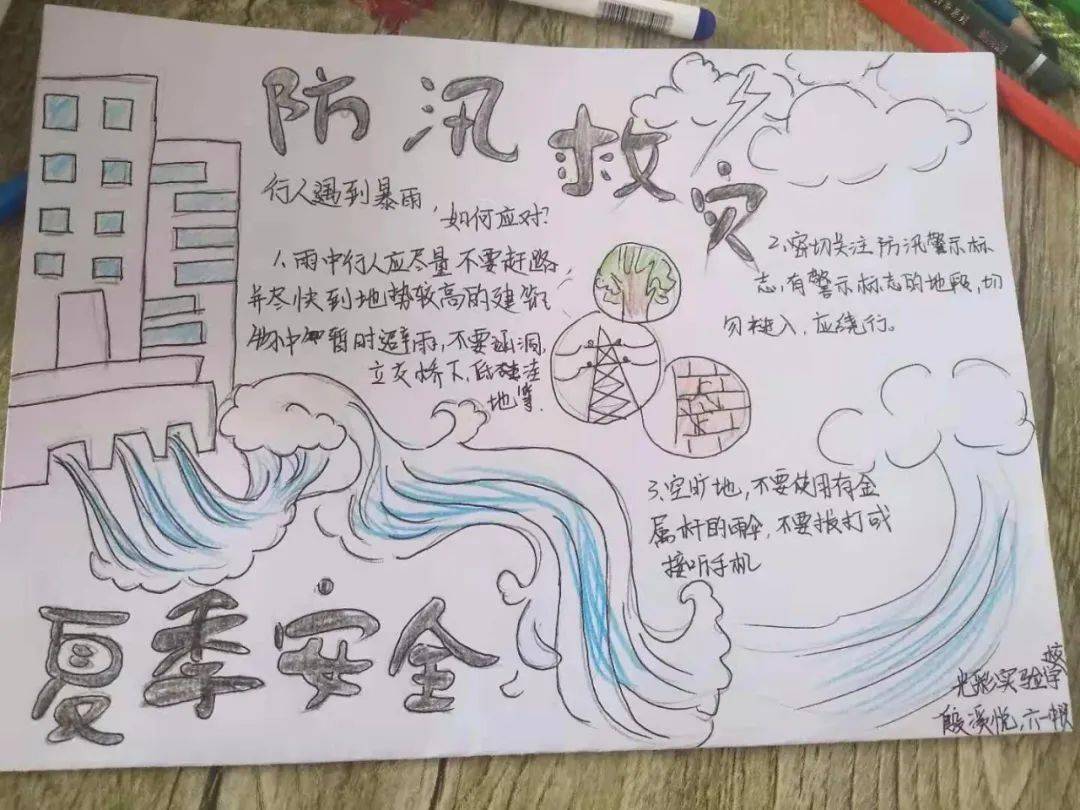 防汛救灾
行人遇到暴雨,如何应对?
1、雨中行人应尽量不要赶路
并尽快到地势较高的建筑
物中暂时避雨,不要涵洞,
立交桥下,低洼
地等.
2、密切关注防汛警示标
志,有警示标志的地段,切
勿入,应绕行。
3、空旷地,不要使用有金
属杆的雨伞,不要拨打或
接听手机
夏季安全
光彩实验学校
殷溪悦,六一班